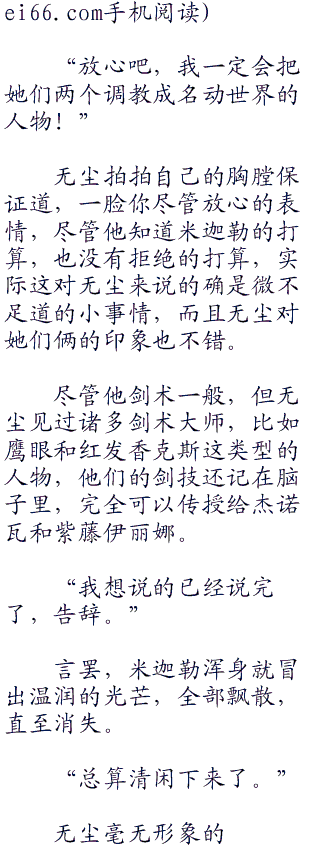 ei66.com手机阅读)
“放心吧，我一定会把
她们两个调教成名动世界的
人物！”
无尘拍拍自己的胸膛保
证道，一脸你尽管放心的表
情，尽管他知道米迦勒的打
算，也没有拒绝的打算，实
际这对无尘来说的确是微不
足道的小事情，而且无尘对
她们俩的印象也不错。
尽管他剑术一般，但无
尘见过诸多剑术大师，比如
鹰眼和红发香克斯这类型的
人物，他们的剑技还记在脑
子里，完全可以传授给杰诺
瓦和紫藤伊丽娜。
“我想说的已经说完
了，告辞。”
言罢，米迦勒浑身就冒
出温润的光芒，全部飘散，
直至消失。
“总算清闲下来了。”
无尘毫无形象的